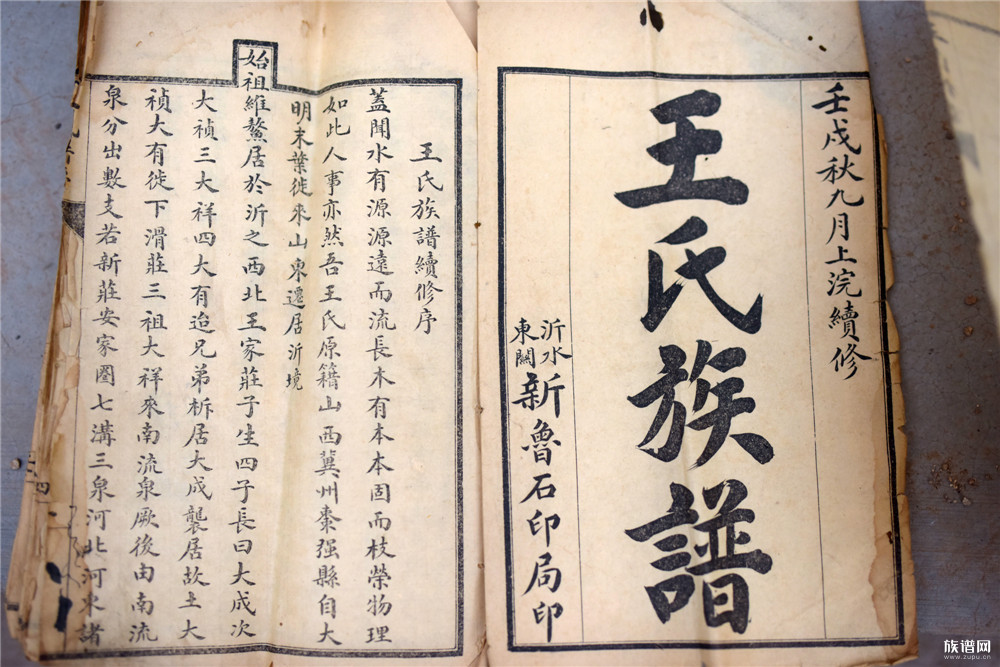 壬戌秋九月上浣續修
王氏族譜
沂水東關新魯石印局印
王氏族譜續修序
蓋聞水有源源遠而流長木有本本固而枝榮物理
如此人事亦然吾王氏原籍山西冀州棗强縣自大
明末葉徙來山東遷居沂境
始祖維鰲居於沂之西北王家莊子生四子長曰大成次
大禎三大祥四大有迨兄弟析居大成襲居故土大
禎大有徙下滑莊三祖大祥來南流泉厥後由南流
泉分出數支若新莊安家圈七溝三泉河北河東諸
族谱网
www.zupu.cn